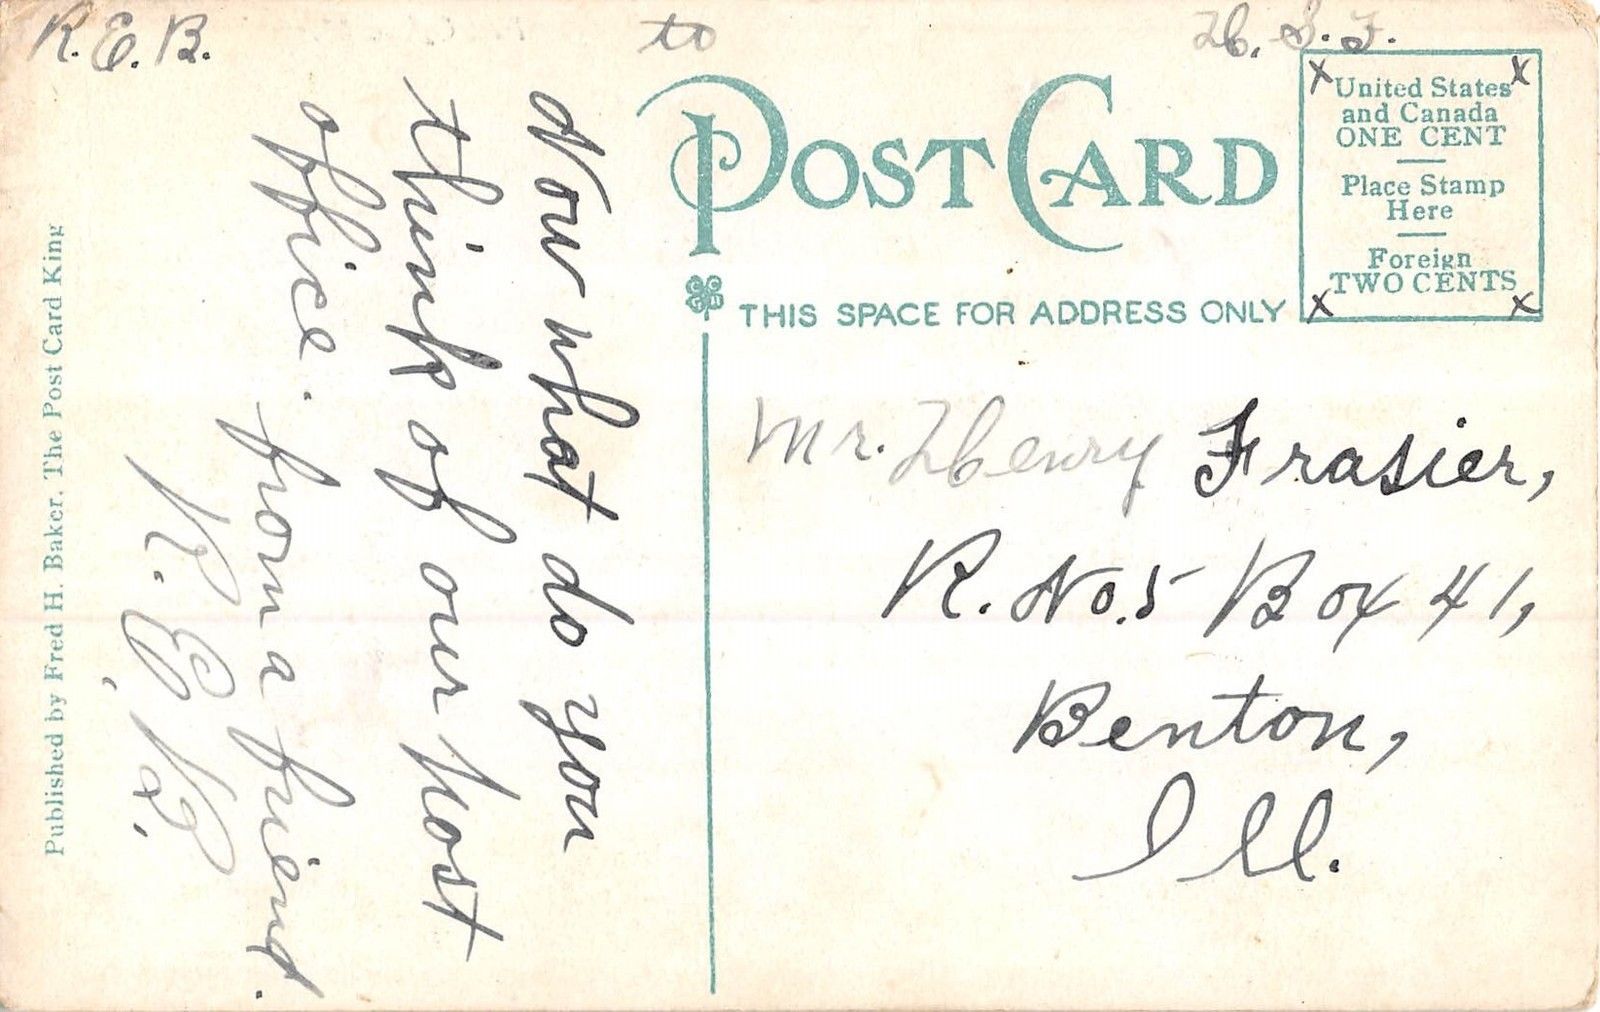 R. E. B. to H. S. F.
POST CARD
United States
and Canada
ONE CENT
Place Stamp
Here
Foreign
TWO CENTS
THIS SPACE FOR ADDRESS ONLY
Now what do you
think of our post
office. from a friend.
R. E. B.
Mr. Henry Frasier,
R. No. 5 Box 41,
Benton,
Ill.
Published by Fred H. Baker, The Post Card King